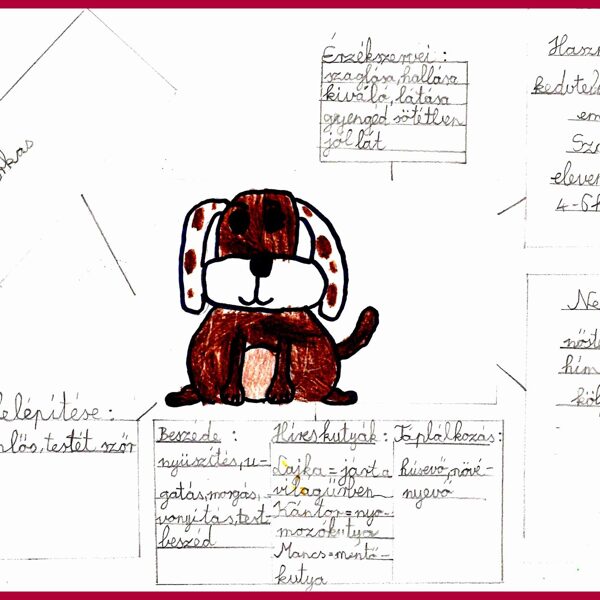 Érzékszervei:
szaglása, hallása
kiváló, látása
gyengéd sötétben
jól lát
kedvte
eleven
4-6
Ne
nőst
hím
köl
elépítése:
testét szőr
Beszéde:
nyüszítés, u-
gatás, morgás,
vonyítás, test-
beszéd
Híres kutyák:
Lajka = járt a
világűrben
Kántor = nyo-
mozókutya
Mancs = mentő-
kutya
Táplálkozás:
húsevő, növé-
nyevő